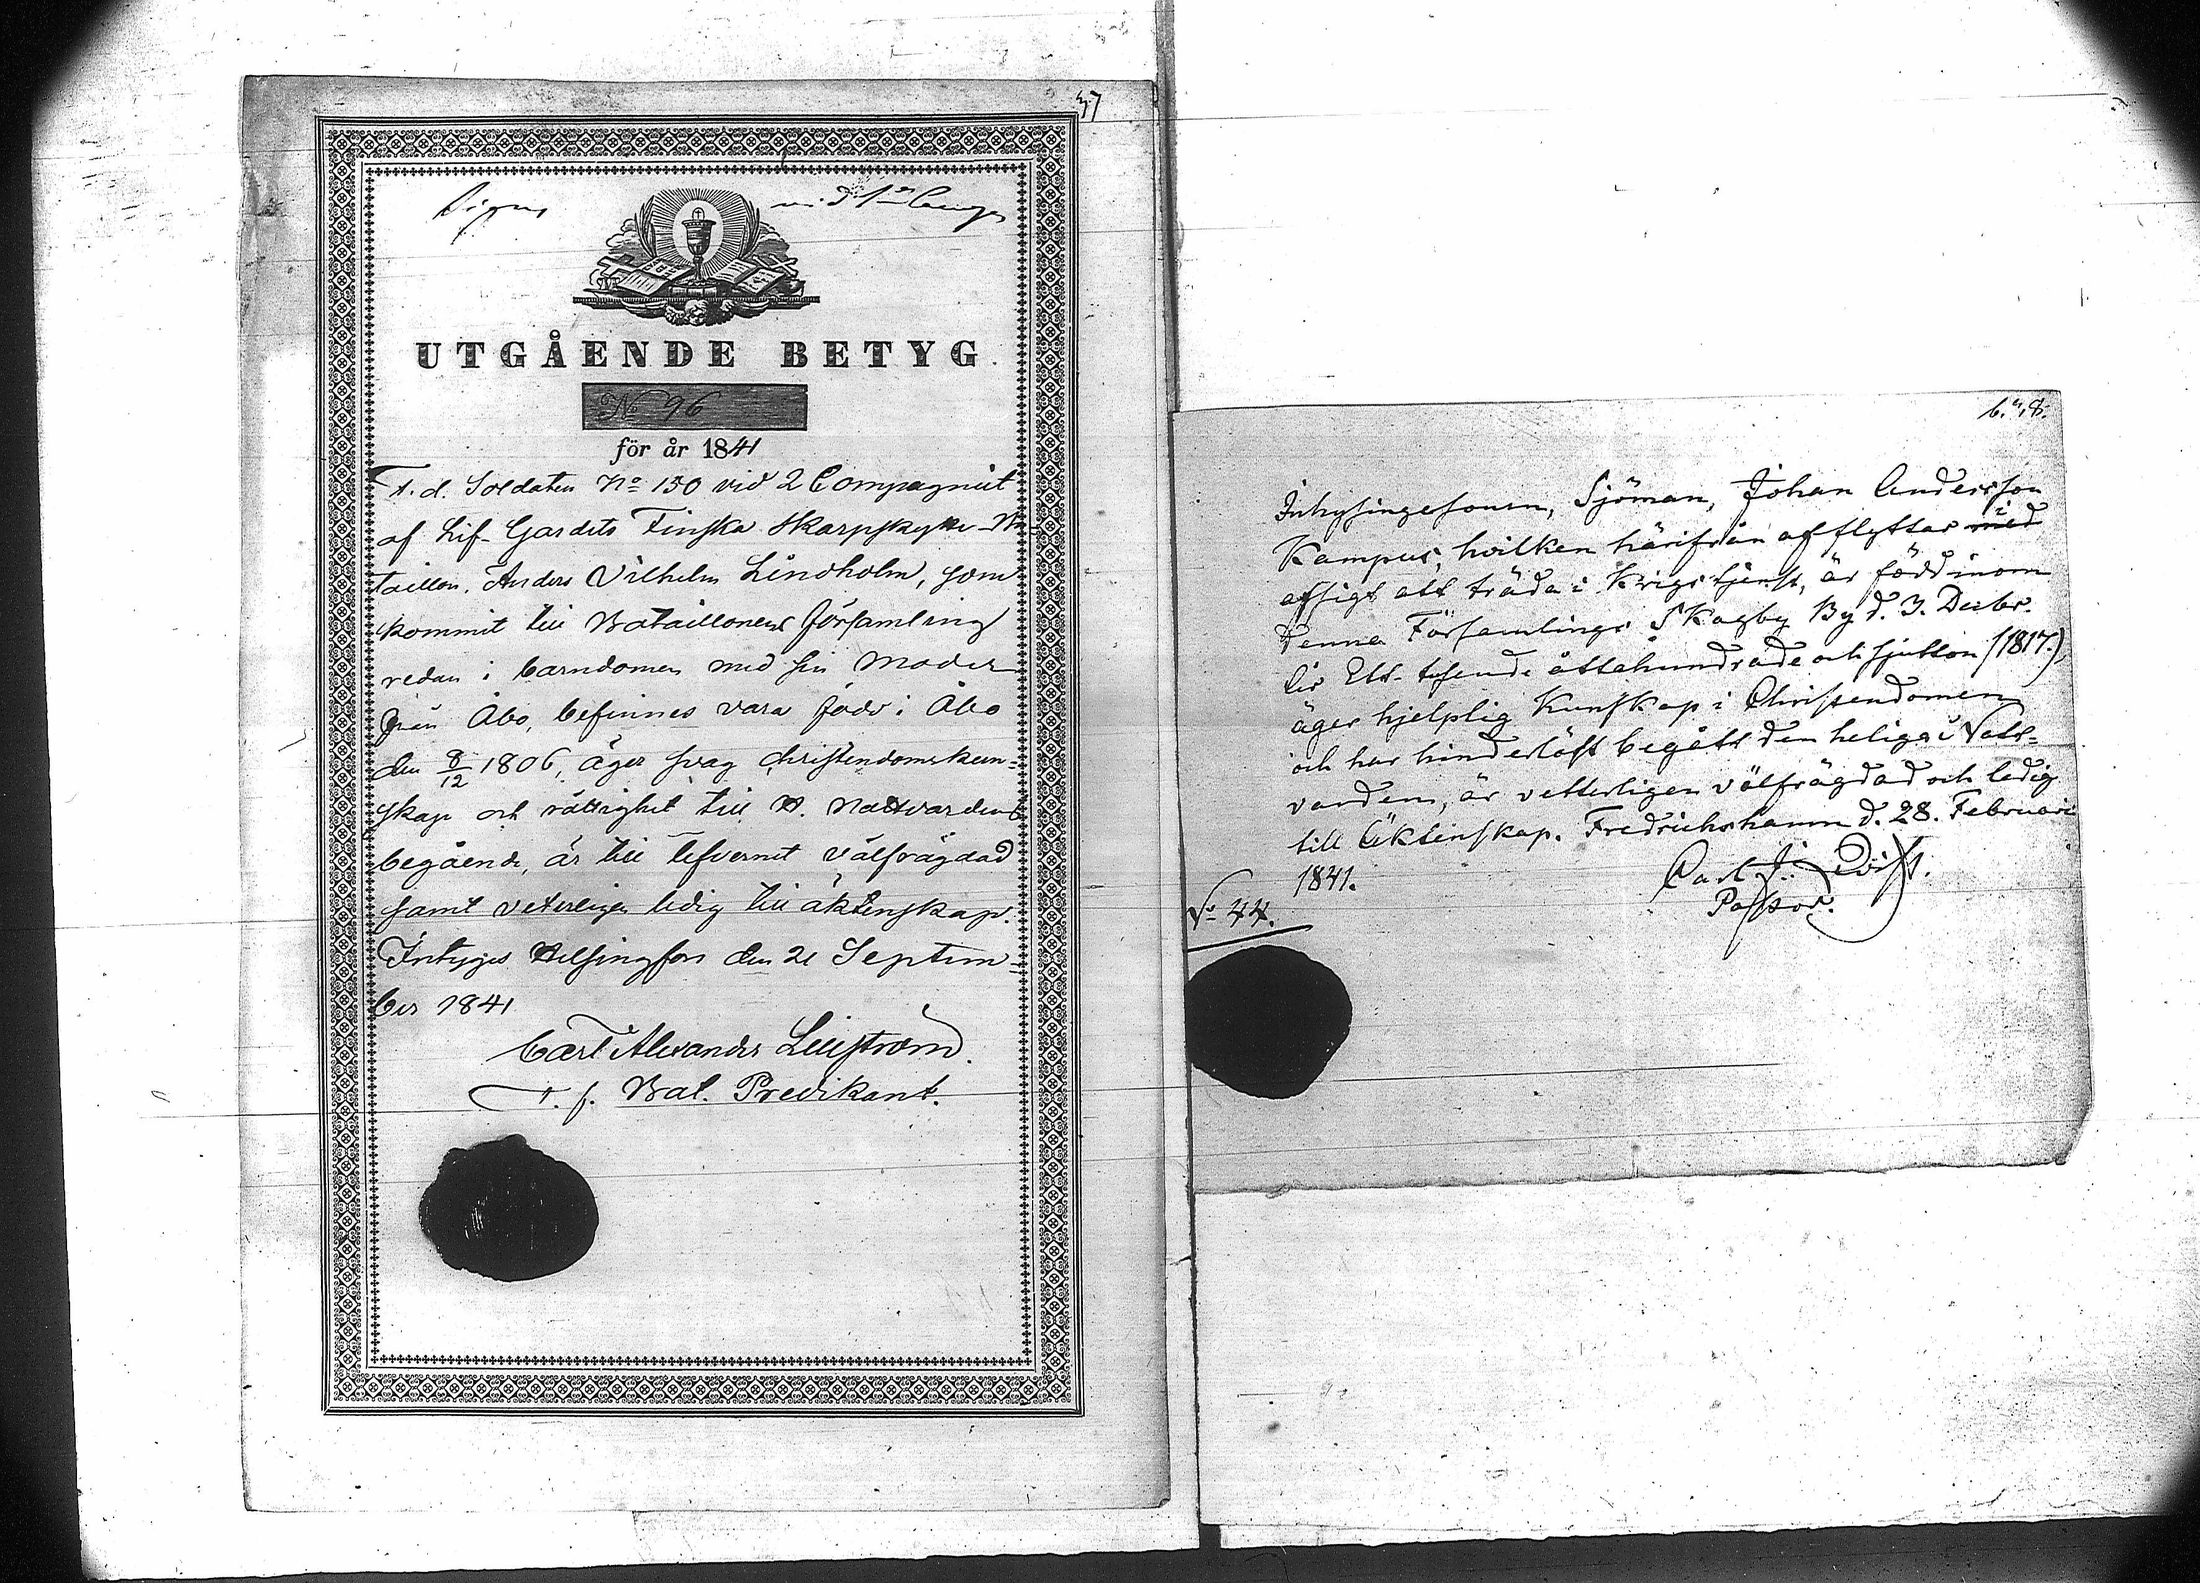 37
UTGÅENDE BETYG
No 96
för år 1841
F. d. Soldaten No 150 vid 2 Compagniet
af Lif-Gardets Finska Skarpskytte-Ba-
taillon, Anders Vilhelm Lindholm, som
kommit till Bataillonens församling
redan i barndomen med sin Moder
från Åbo, befinnes vara född i Åbo
den 8/12 1806, äger svag Christendomskun-
skap och rättighet till H. Nattvardens
begående, är till lefvernet välfrägdad
samt veterligen ledig till äktenskap.
Intygas Helsingfors den 21 Septem-
ber 1841
Carl Alexander Lillström.
t. f. Bat. Predikant.
Inhysingesonen, Sjöman, Johan Andersson
Kampus, hvilken härifrån afflyttar med
afsigt att träda i Krigstjenst, är född inom
denna Församlings Skagby By d. 3. Decbr.
År Ett- tusende åttahundrade och sjutton (1817.),
äger hjelplig Kunskap i Christendomen
och har hinderlöst begått den heliga Natt-
varden, är vetterligen välfrägdad och ledig
till Äktenskap. Fredrichshamn d. 28. Februari
1841.
Carl J.
Pastor.
No 44.